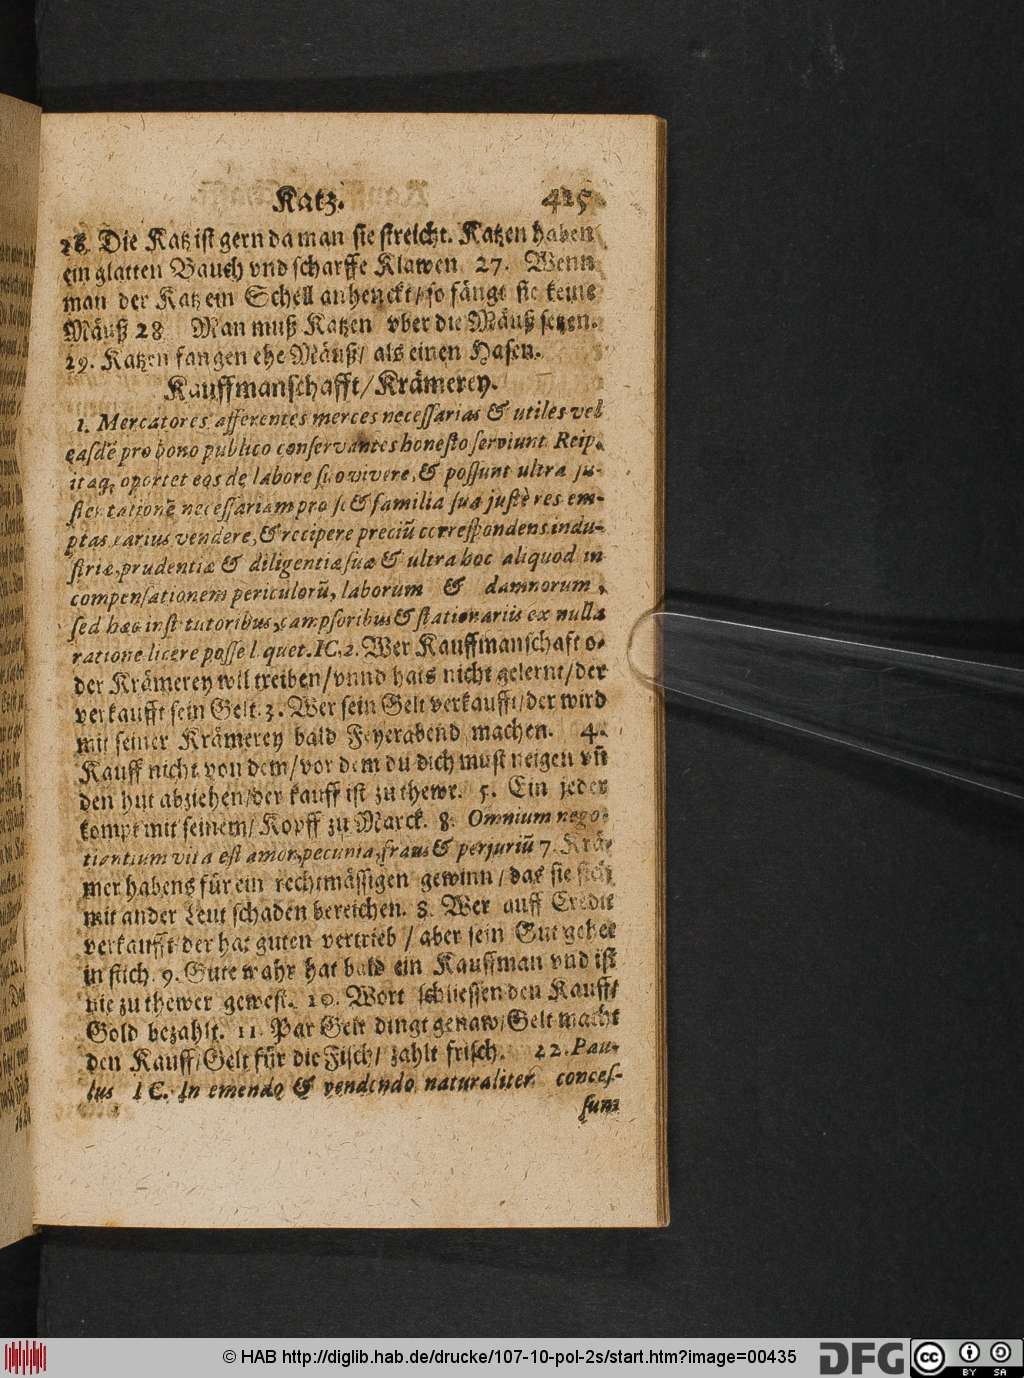 Katz. 425
26. Die Katz ist gern da man sie streicht. Katzen haben
ein glatten Bauch vnd scharffe Klawen. 27. Wenn
man der Katz ein Schell anhenckt/ so fängt sie keine
Mäuß 28 Man muß Katzen vber die Mäuß setzen.
29. Katzen fangen ehe Mäuß/ als einen Hasen.
Kauffmanschafft/ Krämerey.
1. Mercatores afferentes merces necessarias & utiles vel
easdē pro bono publico conservantes honesto serviunt Reip.
itaq; oportet eos de labore suo vivere, & possunt ultra su-
stentationē necessariam pro se & familia sua justè res em-
ptas carius vendere, & recipere preciū correspondens indu-
striæ, prudentiæ & diligentiæ suæ & ultra hoc aliquod in
compensationem periculorū, laborum & damnorum,
sed hæc institutoribus, campsoribus & stationariis ex nulla
ratione licere posse l. quet. IC, 2. Wer Kauffmanschaft o-
der Krämerey wil treiben/ vnnd hats nicht gelernt/ der
verkaufft sein Gelt. 3. Wer sein Gelt verkaufft/ der wird
mit seiner Krämerey bald Feyerabend machen. 4.
Kauff nicht von dem/ vor dem du dich must neigen vn̄
den hut abziehen/ der kauff ist zu thewr. 5. Ein jeder
kompt mit seinem/ Kopff zu Marck. 8. Omnium nego-
tiantium vita est amor, pecunia, fraus & perjuriū 7. Krä-
mer habens für ein rechtmässigen gewinn/ das sie sich
mit ander Leut schaden bereichen. 8. Wer auff Credit
verkaufft der hat guten vertrieb/ aber sein Gut gehet
in stich. 9. Gute wahr hat bald ein Kauffman vnd ist
nie zu thewer gewest. 10. Wort schliessen den Kauff/
Gold bezahlt. 11. Par Gelt dingt genaw/ Gelt macht
den Kauff/ Gelt für die Fisch/ zahlt frisch. 12. Pau-
lus IC. In emendo & vendendo naturaliter conces-
sum
© HAB http://diglib.hab.de/drucke/107-10-pol-2s/start.htm?image=00435
DFG
cc BY SA